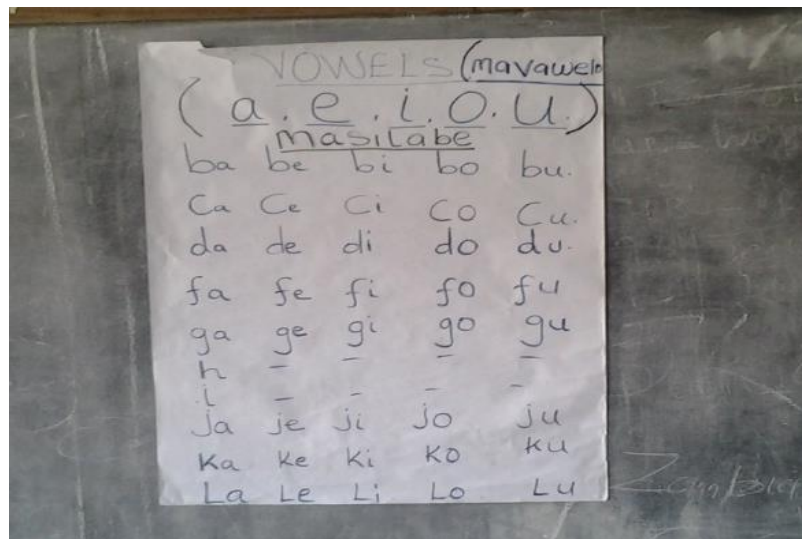 VOWELS (mavawelo
(a . e . i . o . u.)
masilabe
ba be bi bo bu.
Ca Ce Ci Co Cu.
da de di do du.
fa fe fi fo fu
ga ge gi go gu
h – – – –
i – – – –
ja je ji jo ju
Ka Ke Ki Ko Ku
La Le Li Lo Lu